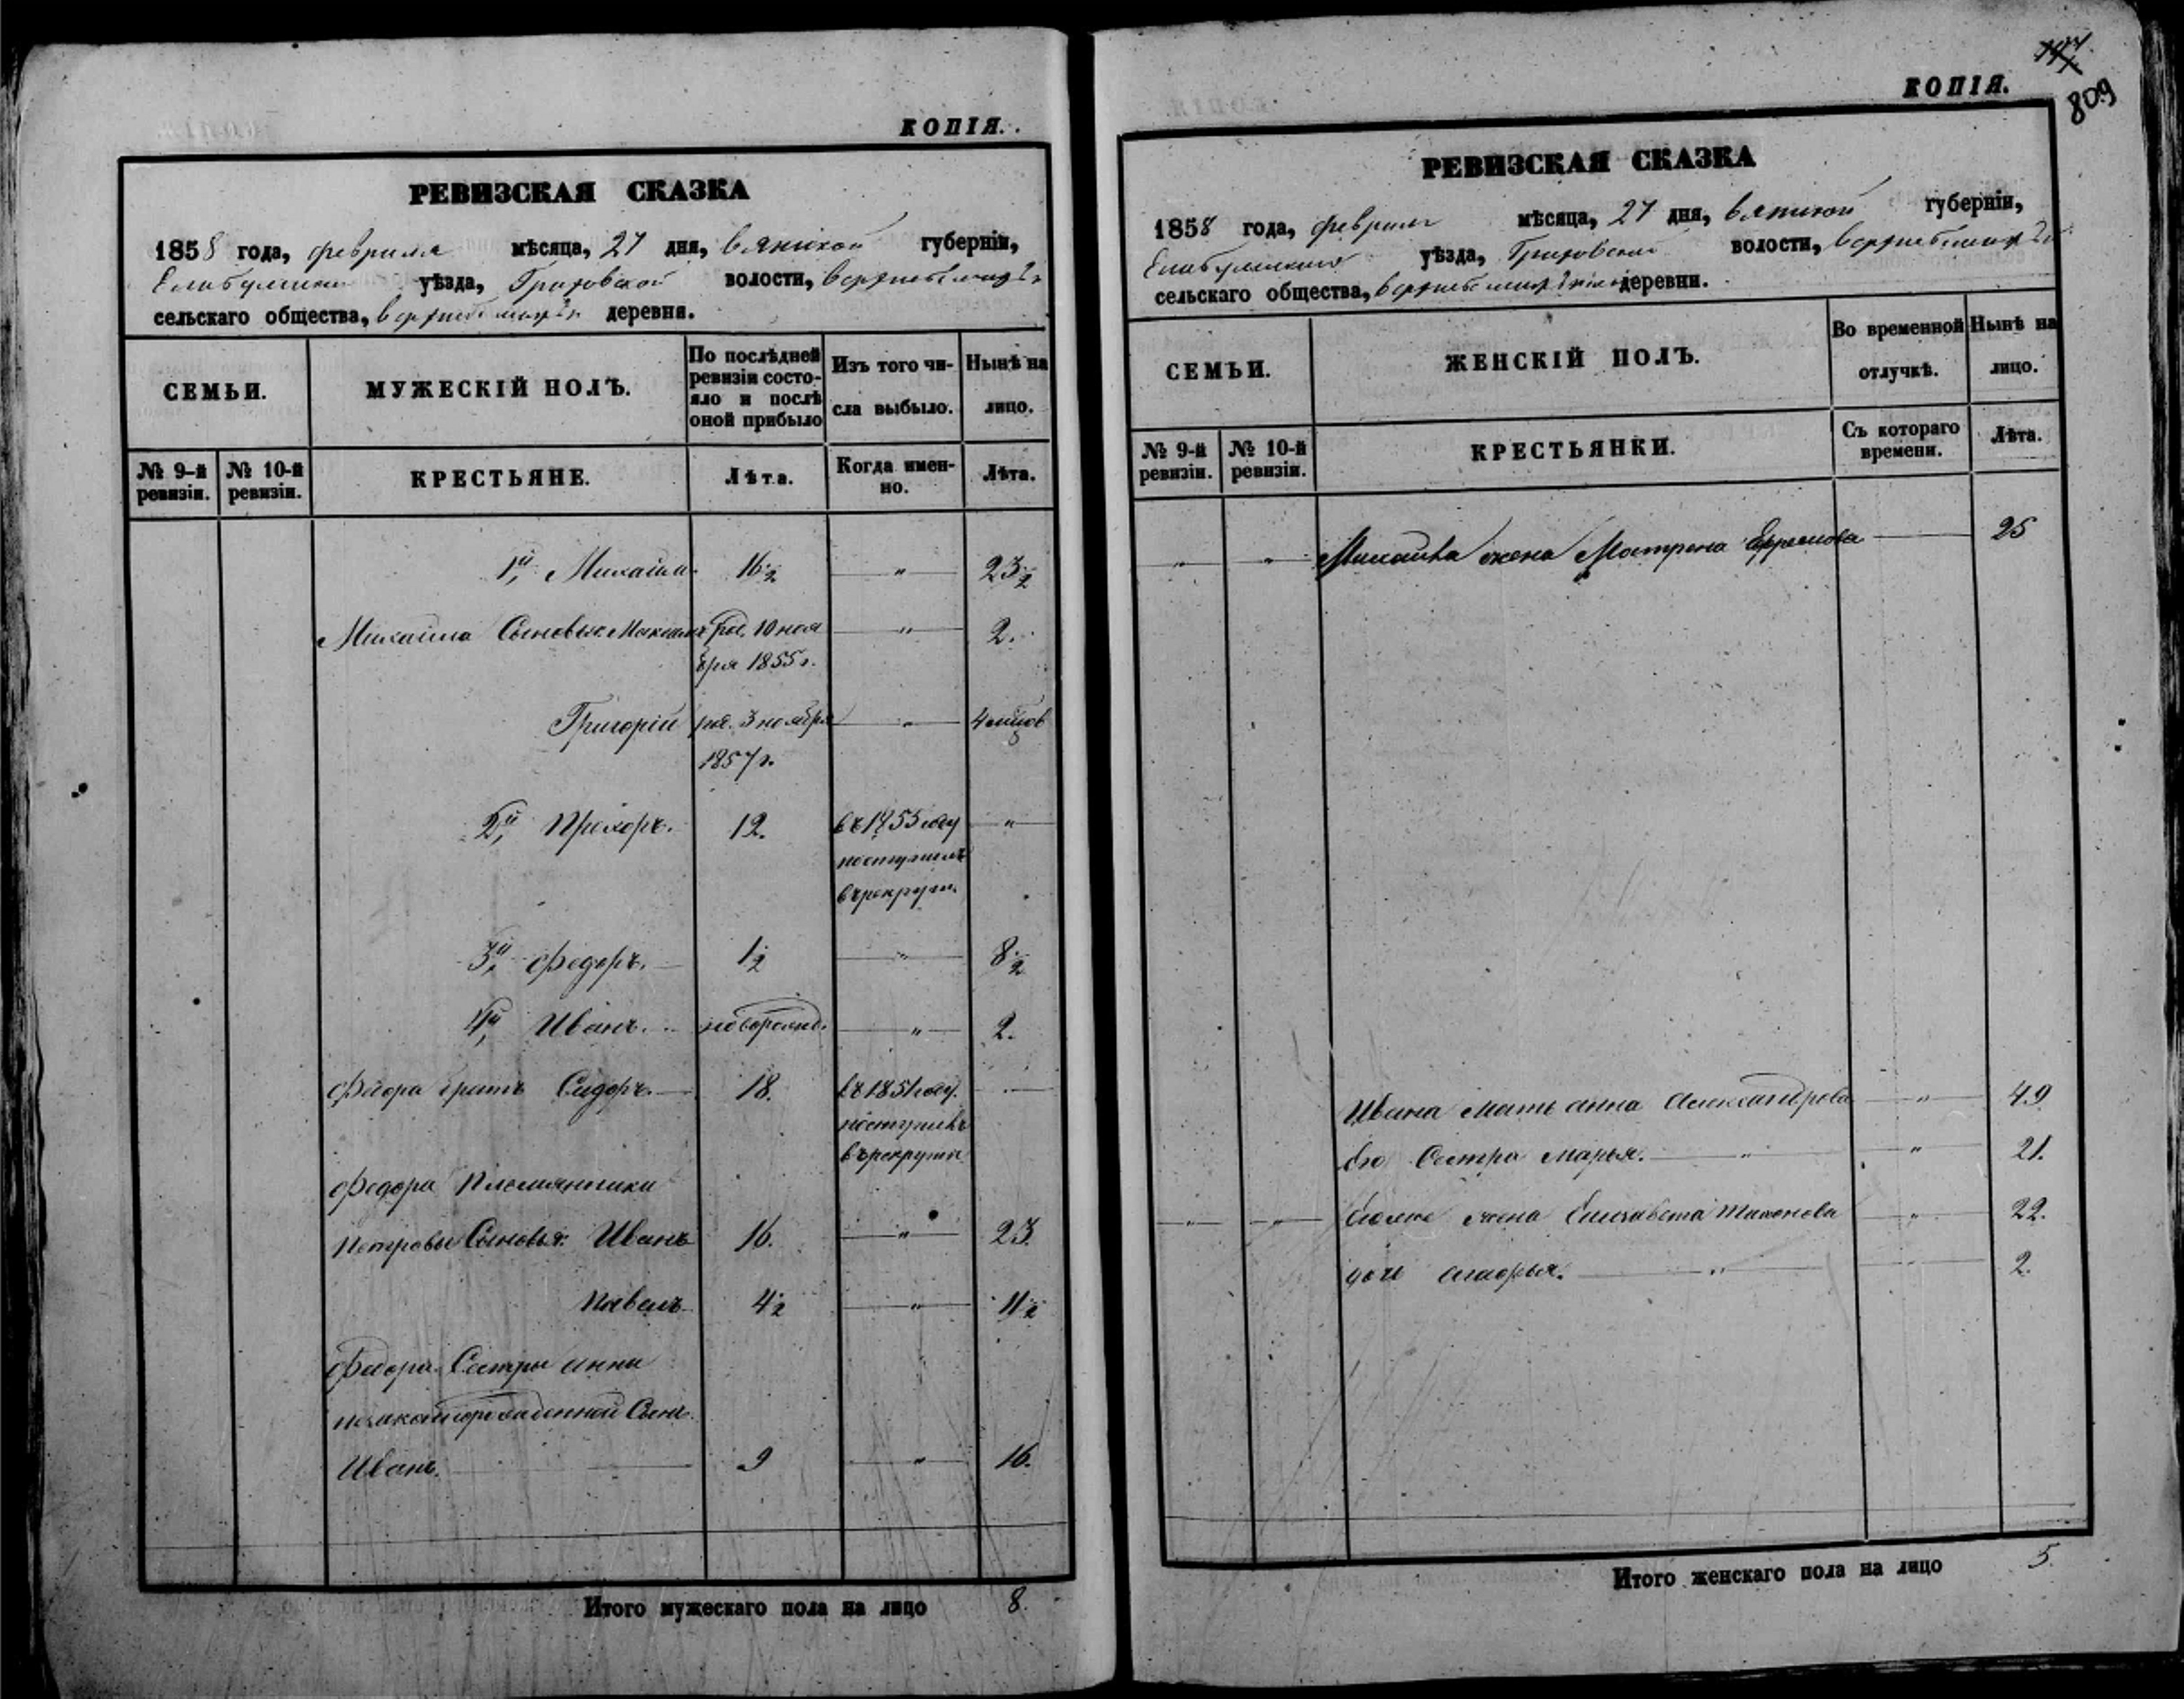 КОПІЯ.
РЕВИЗСКАЯ СКАЗКА
1858 года, февраля мѣсяца, 27 дня, Вятской губерніи,
Елабужскаго уѣзда, волости,
сельскаго общества, деревни.
СЕМЬИ.
МУЖЕСКІЙ ПОЛЪ.
По послѣдней
ревизіи состо-
яло и послѣ
оной прибыло
Изъ того чи-
сла выбыло.
Нынѣ на
лицо.
№ 9-й
ревизіи.
№ 10-й
ревизіи.
КРЕСТЬЯНЕ.
Лѣта.
Когда имен-
но.
Лѣта.
1й, Михаилъ 16½ " 23½
Михаила Сыновья: Максимъ род. 10 ноя " 2.
бря 1855 г.
Григорій род. 3 ноября " 4 мцов
1857 г.
2й, Прохоръ. 12. въ 1855 году "
поступилъ
в рекруты.
3й, Федоръ. 1½ " 8½
4й, Иванъ. новорожд. " 2.
Федора братъ Сидоръ. 18. въ 1851 году.
поступилъ
в рекруты
Федора Племянники
Петровы Сыновья: Иванъ 16. " 23.
Павелъ 4½ " 11½
Федора Сестры Анны
незаконорожденной Сынъ
Иванъ. 9 " 16.
Итого мужескаго пола на лицо 8.
КОПІЯ.
809
РЕВИЗСКАЯ СКАЗКА
1858 года, февраля мѣсяца, 27 дня, Вятской губерніи,
Елабужскаго уѣзда, волости,
сельскаго общества, деревни.
СЕМЬИ.
ЖЕНСКІЙ ПОЛЪ.
Во временной
отлучкѣ.
Нынѣ на
лицо.
№ 9-й
ревизіи.
№ 10-й
ревизіи.
КРЕСТЬЯНКИ.
Съ котораго
времени.
Лѣта.
" " Михаила жена Матрена Ефремова 25
Ивана Мать Анна Александрова " 49
Его Сестра Марья. " " 21.
" " жена Елизавета Тихонова " 22.
дочь " 2.
Итого женскаго пола на лицо 5.